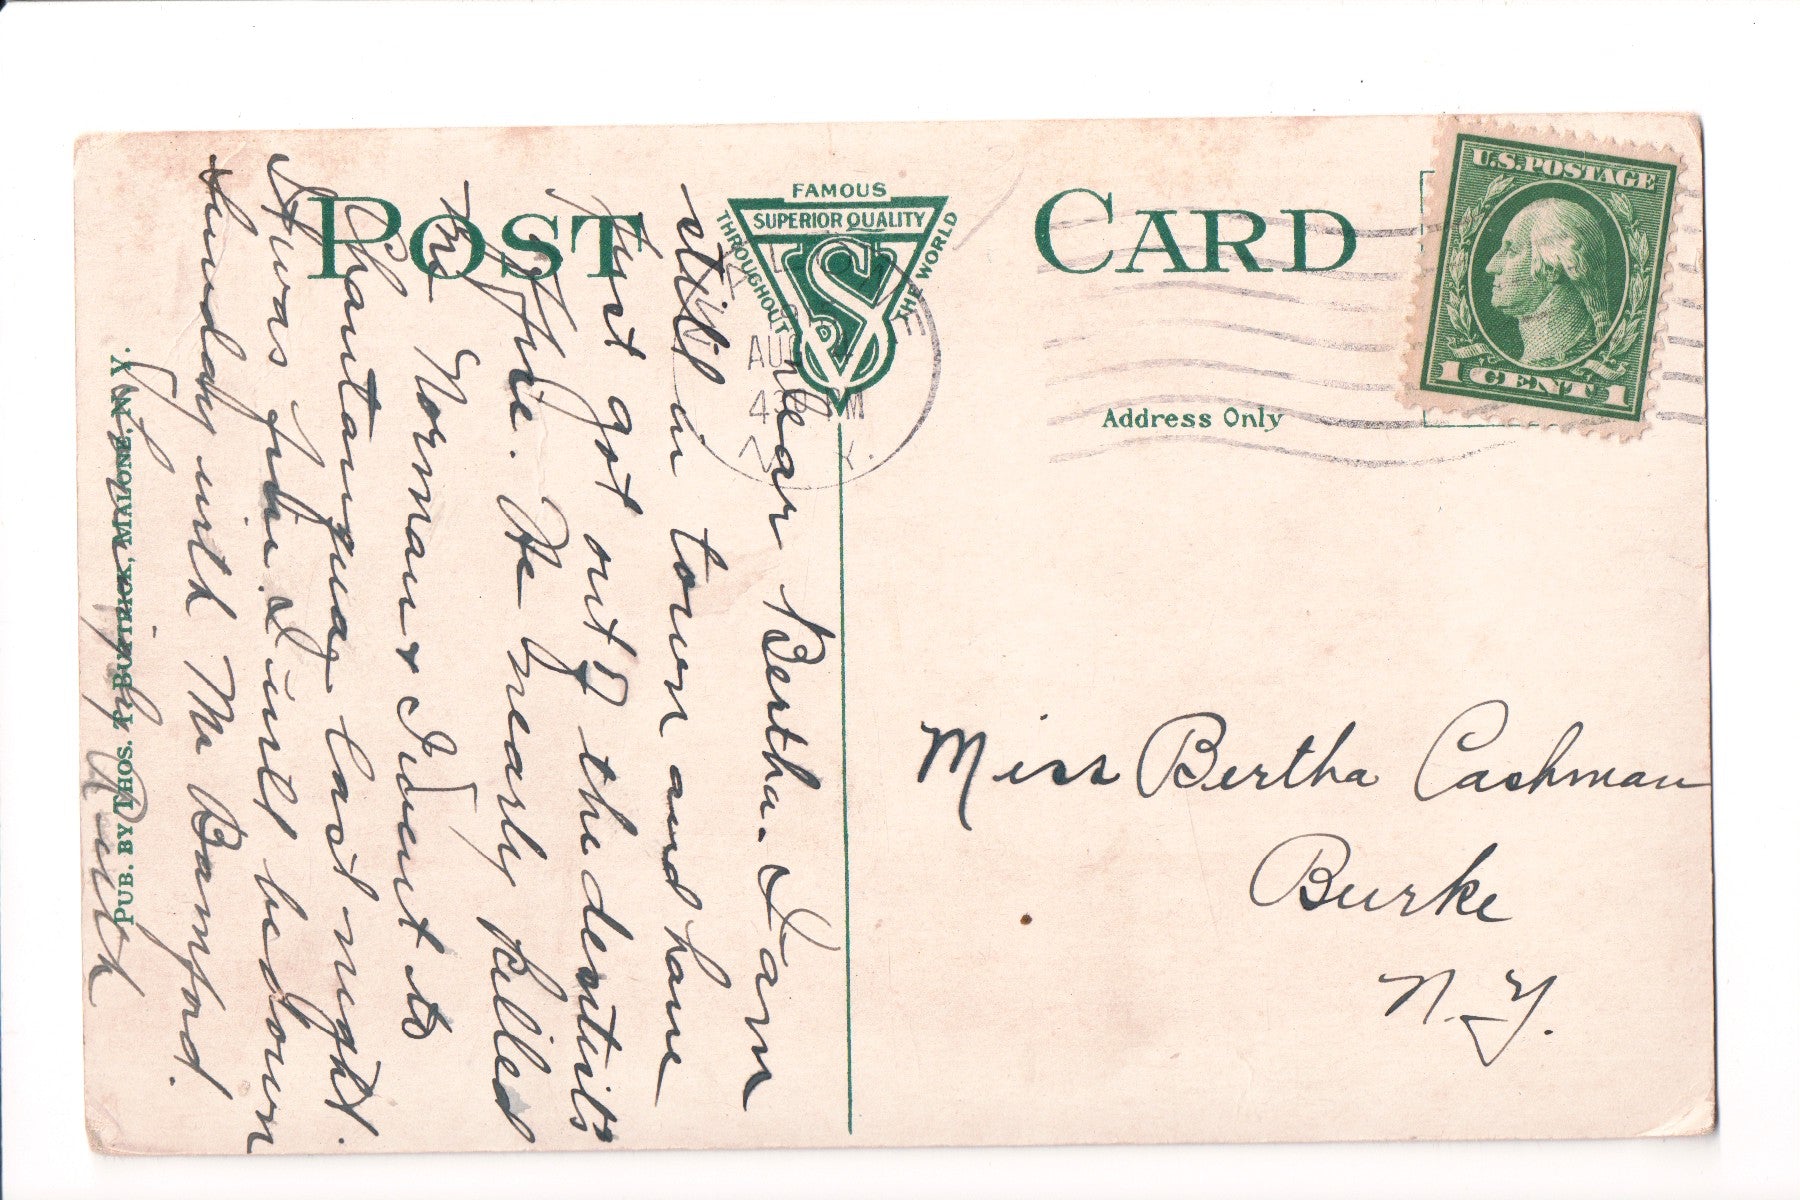 POST CARD
FAMOUS
SUPERIOR QUALITY
THROUGHOUT THE WORLD
U.S. POSTAGE
1 CENT 1
AUG
430 PM
N. Y.
Address Only
Dear Bertha. I am
still in town and have
just got out of the dentist's
office. He nearly killed
me. Norman & I went to
Chautauqua last night.
It was fine. I will be down
Sunday with Mr Bamford.
Ruth
Miss Bertha Cashman
Burke
N.Y.
PUB. BY THOS. T. BUTTRICK, MALONE, N. Y.